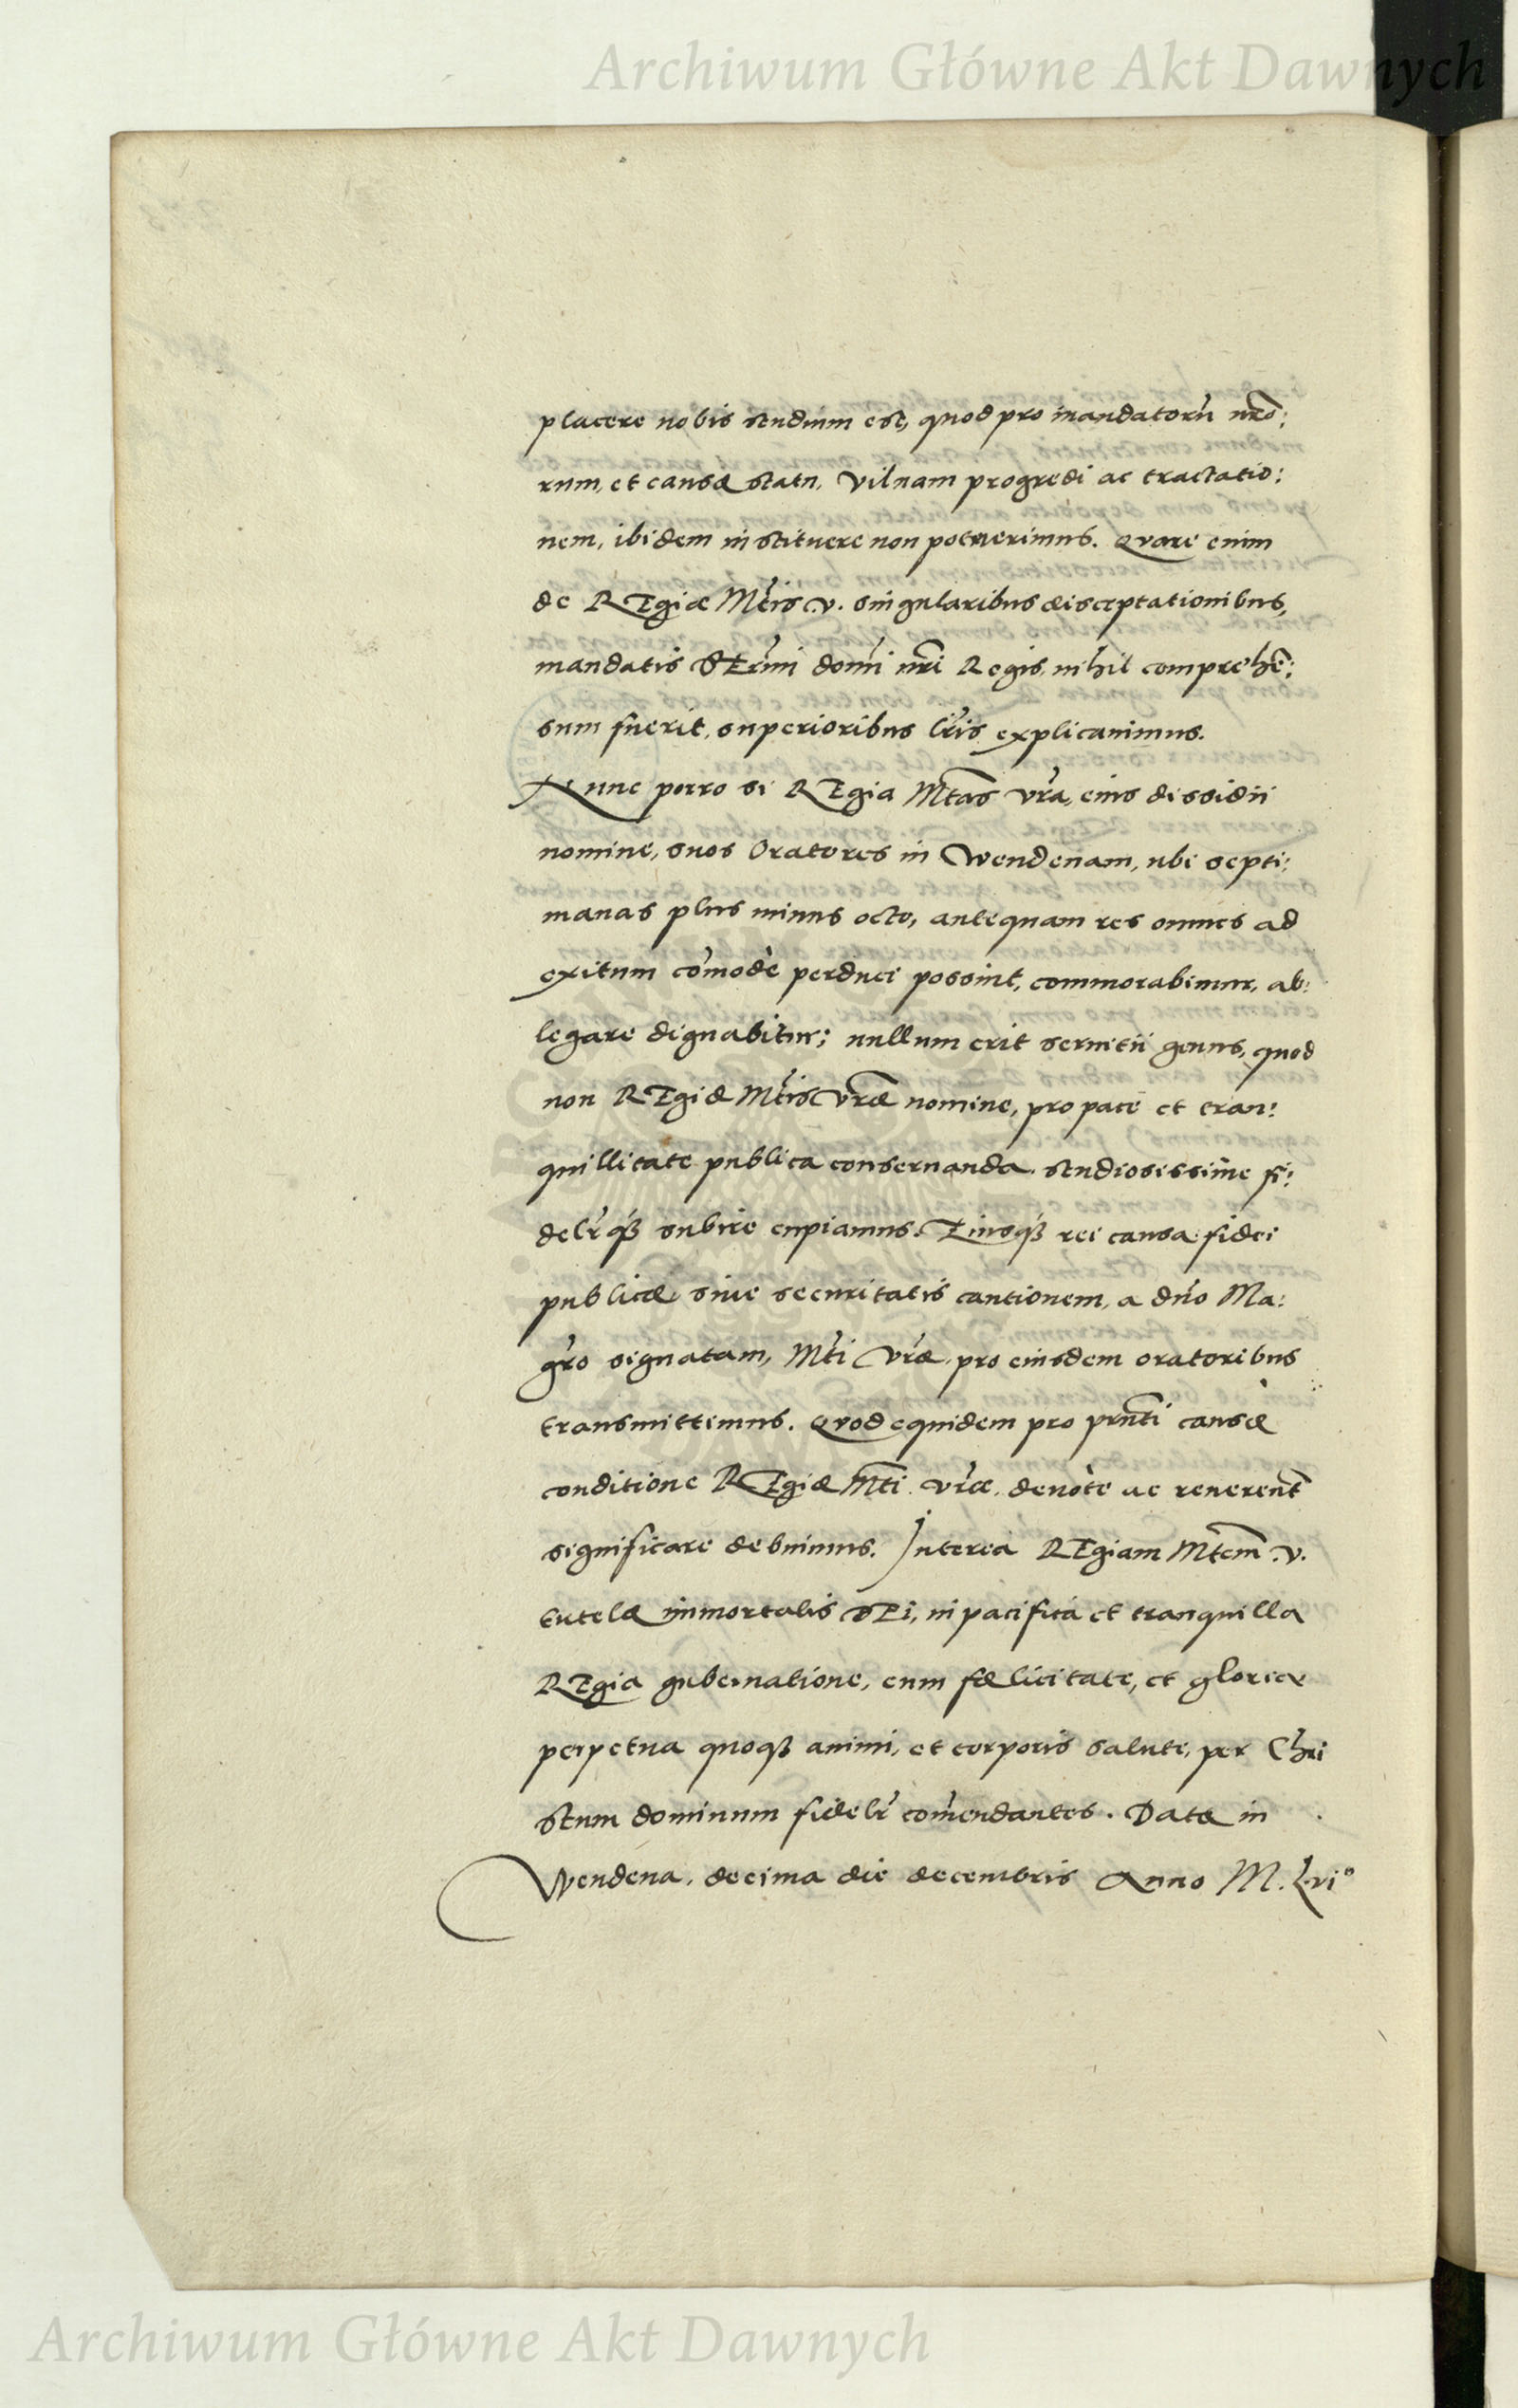 Archiwum Główne Akt Dawnych
placere nobis studium est, quod pro mandatorũ nr̃o:
rum, et causæ statu, Vilnam progredi ac tractatio:
nem, ibidem instituere non potuerimus. Quare enim
de REgiæ Mt̃is v. singularibus disceptationibus,
mandatis SEr̃mi domĩ nr̃i Regis, nihil comprehẽ:
sum fuerit, superioribus lr̃is explicauimus.
Nunc porro si REgia Mt̃as vr̃a, eius dissidii
nomine, suos Oratores in Wendenam, ubi septi:
manas plus minus octo, antequam res omnes ad
exitum com̃odè perduci possint, commorabimur, ab:
legare dignabitur; nullum erit seruitii genus, quod
non REgiæ Mt̃is vr̃æ nomine, pro pace et tran:
quillitate publica conseruanda, studiosissime fi:
delr̃qȝ subire cupiamus. Eiusqȝ rei causa fidei
publicæ, siue securitatis cautionem, a dño Ma:
gr̃o signatam, Mt̃i vr̃æ, pro eiusdem oratoribus
transmittimus. Quod equidem pro prñti causæ
conditione REgiæ Mt̃i vr̃æ, deuòte ac reuerent̃
significare debuimus. Interea REgiam Mt̃em v.
tutelæ immortalis DEi, in pacifica et tranquilla
REgia gubernatione, cum fælicitate, et gloria
perpetua quoqȝ animi, et corporis salute, per Chri
stum dominum fidelr̃ com̃endantes. Data in
Wendena, decima die decembris Anno M. Lvi°
Archiwum Główne Akt Dawnych